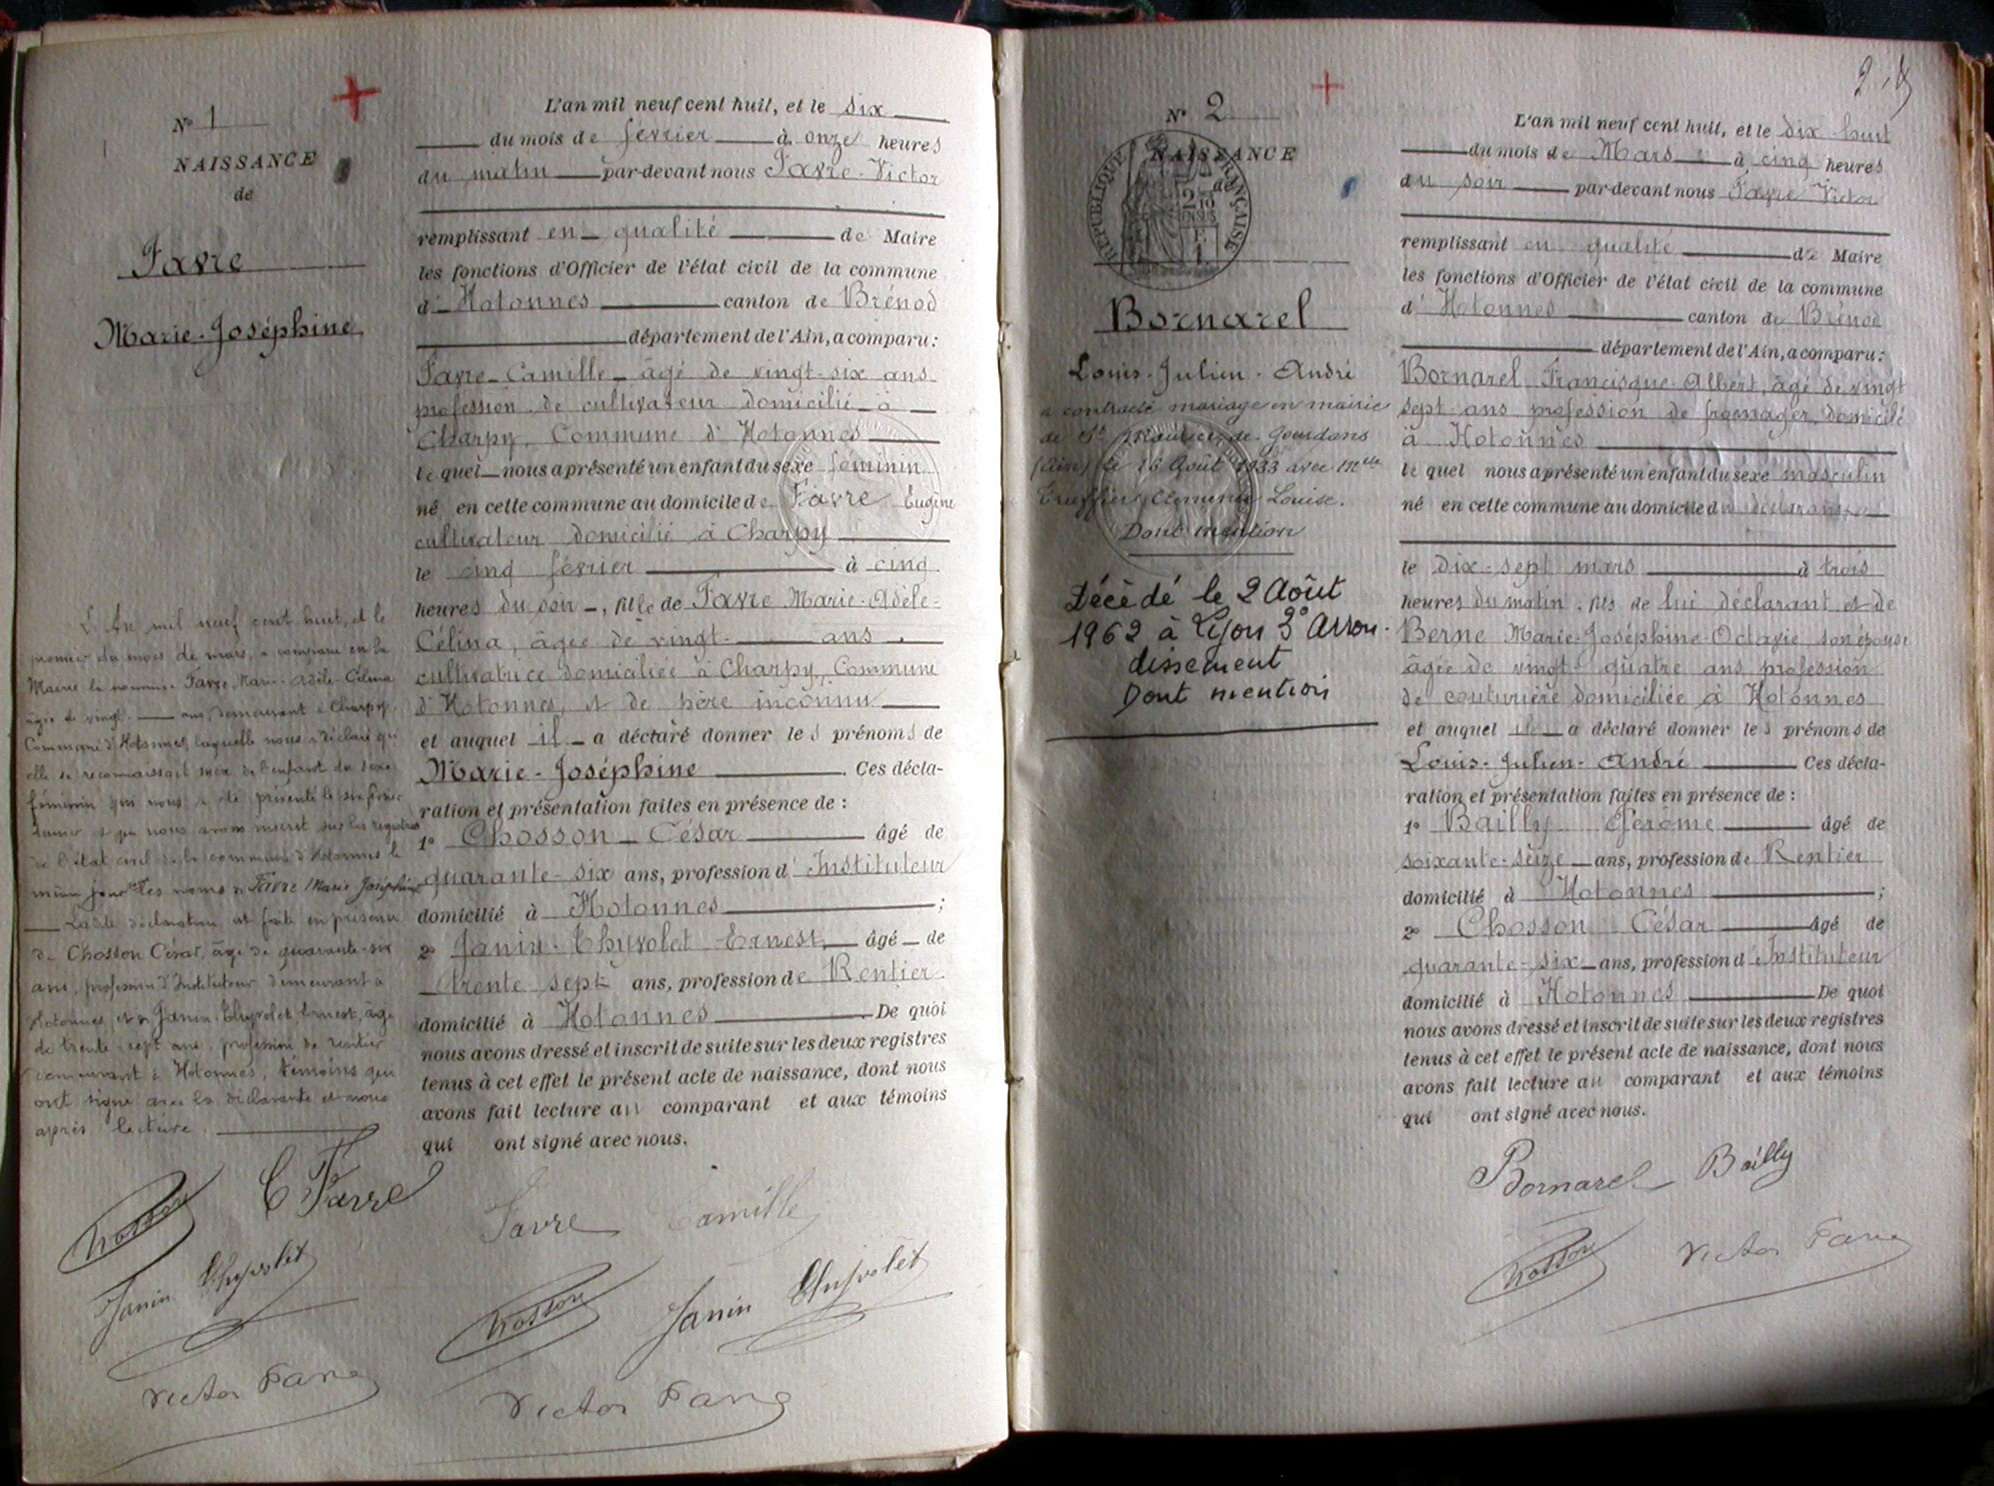 N° 1
NAISSANCE
de
Favre
Marie-Joséphine
L'An mil neuf cent huit, et le
premier du mois de mars, a comparu en la
Mairie la nommée Favre Marie-Adèle-Célina
âgée de vingt ans, demeurant à Charpy,
Commune d'Hotonnes, laquelle nous a déclaré qu'
elle se reconnaissait mère de l'enfant du sexe
féminin qui nous a été présenté le six février
dernier et que nous avons inscrit sur les registres
de l'état civil de la commune d'Hotonnes le
même jour les noms de Favre Marie Joséphine
Ladite déclaration est faite en présence
de Chosson César, âgé de quarante-six
ans, profession d'Instituteur demeurant à
Hotonnes, et de Janin-Thyvolet Ernest, âgé
de trente-sept ans, profession de rentier
demeurant à Hotonnes, témoins qui
ont signé avec la déclarante et nous
après lecture.
C Favre
Chosson
Janin Thyvolet
Victor Favre
L'an mil neuf cent huit, et le six
du mois de février à onze heures
du matin par-devant nous Favre-Victor
remplissant en qualité de Maire
les fonctions d'Officier de l'état civil de la commune
d'Hotonnes canton de Brénod
département de l'Ain, a comparu:
Favre-Camille âgé de vingt-six ans
profession de cultivateur domicilié à
Charpy, Commune d'Hotonnes
le quel nous a présenté un enfant du sexe féminin
né en cette commune au domicile de Favre Eugène
cultivateur domicilié à Charpy
le cinq février à cinq
heures du soir, fille de Favre Marie-Adèle-
Célina, âgée de vingt ans
cultivatrice domiciliée à Charpy, Commune
d'Hotonnes, et de père inconnu
et auquel il a déclaré donner les prénoms de
Marie-Joséphine. Ces décla-
ration et présentation faites en présence de:
1° Chosson César âgé de
quarante-six ans, profession d'Instituteur
domicilié à Hotonnes;
2° Janin-Thyvolet Ernest âgé de
trente sept ans, profession de Rentier
domicilié à Hotonnes De quoi
nous avons dressé et inscrit de suite sur les deux registres
tenus à cet effet le présent acte de naissance, dont nous
avons fait lecture au comparant et aux témoins
qui ont signé avec nous.
Favre Camille
Chosson Janin Thyvolet
Victor Favre
N° 2
NAISSANCE
de
RÉPUBLIQUE FRANÇAISE
Bornarel
Louis-Julien-André
a contracté mariage en mairie
de St Maurice de Gourdans
(Ain) le 16 Août 1933 avec Mlle
Clémence Louise.
Dont mention
Décédé le 2 Août
1962 à Lyon 3° Arron-
dissement
Dont mention
L'an mil neuf cent huit, et le dix huit
du mois de Mars à cinq heures
du soir par-devant nous Favre Victor
remplissant en qualité de Maire
les fonctions d'Officier de l'état civil de la commune
d'Hotonnes canton de Brénod
département de l'Ain, a comparu:
Bornarel Francisque-Albert, âgé de vingt
sept ans profession de fromager domicilié
à Hotonnes
le quel nous a présenté un enfant du sexe masculin
né en cette commune au domicile du déclarant
le dix-sept mars à trois
heures du matin, fils de lui déclarant et de
Berne Marie-Joséphine-Octavie son épouse
âgée de vingt-quatre ans profession
de couturière domiciliée à Hotonnes
et auquel il a déclaré donner les prénoms de
Louis-Julien-André Ces décla-
ration et présentation faites en présence de:
1° Bailly Jérome âgé de
soixante-seize ans, profession de Rentier
domicilié à Hotonnes;
2° Chosson César âgé de
quarante-six ans, profession d'Instituteur
domicilié à Hotonnes De quoi
nous avons dressé et inscrit de suite sur les deux registres
tenus à cet effet le présent acte de naissance, dont nous
avons fait lecture au comparant et aux témoins
qui ont signé avec nous.
Bornarel Bailly
Chosson Victor Favre